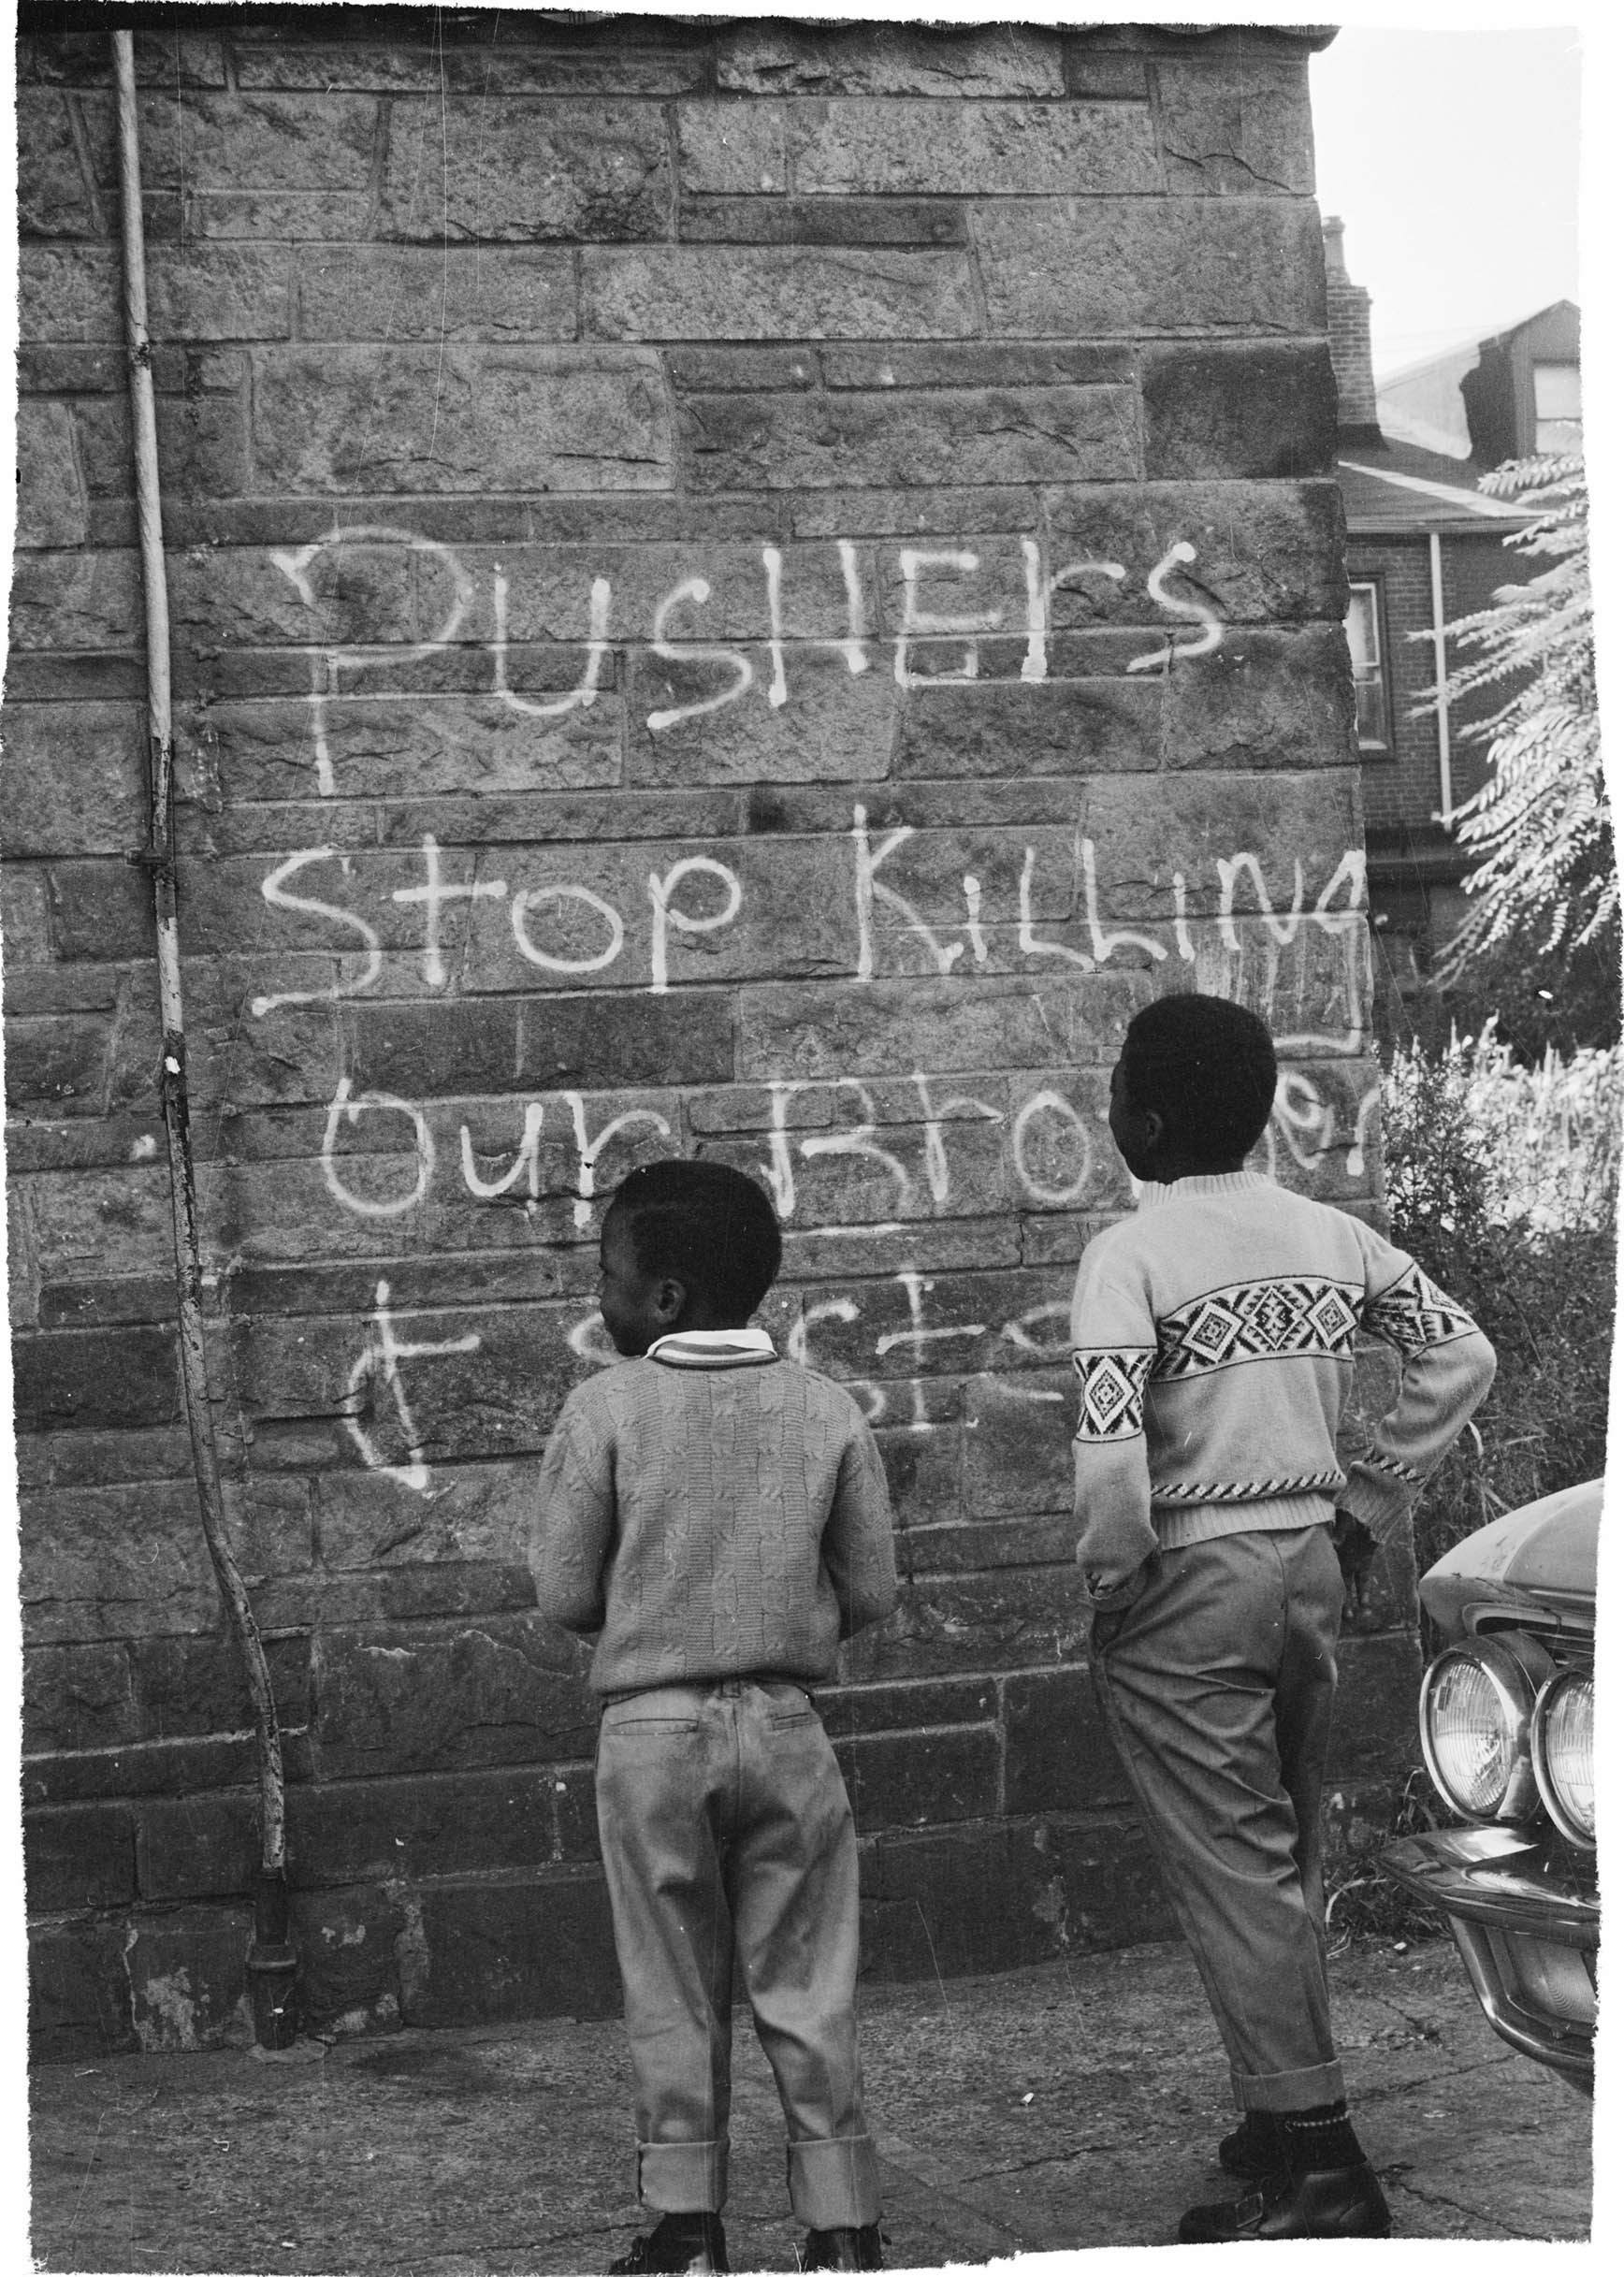 PUSHErs
Stop KiLLiNg
Our Brother
+